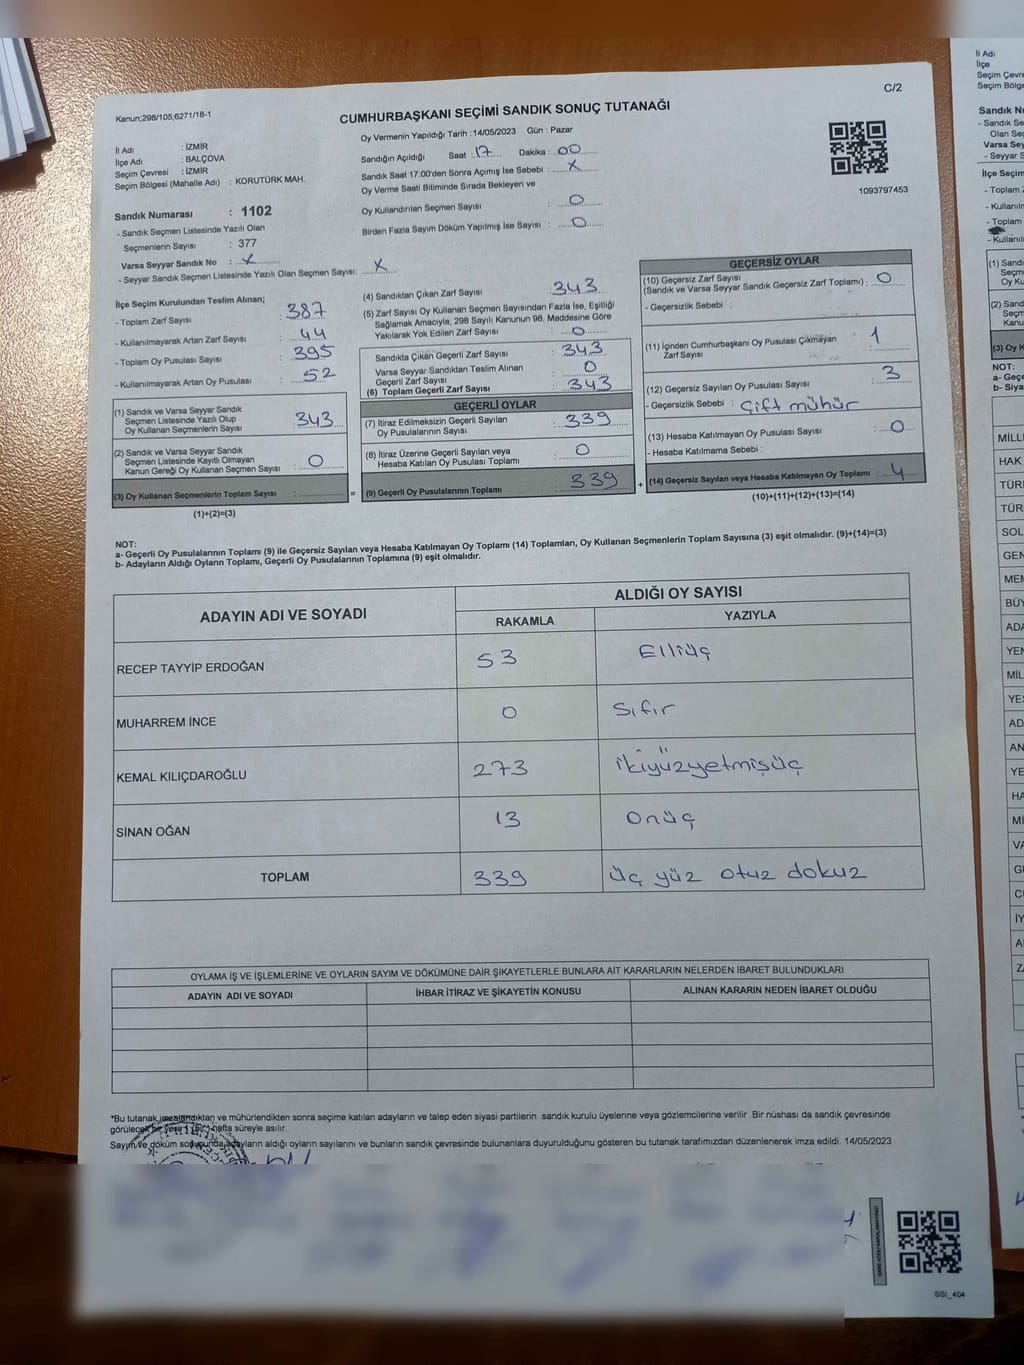 C/2
Kanun;298/105,6271/18-1
CUMHURBAŞKANI SEÇİMİ SANDIK SONUÇ TUTANAĞI
Oy Vermenin Yapıldığı Tarih :14/05/2023 Gün : Pazar
İl Adı : İZMİR
İlçe Adı : BALÇOVA
Seçim Çevresi : İZMİR
Seçim Bölgesi (Mahalle Adı) : KORUTÜRK MAH.
Sandığın Açıldığı Saat : 17 Dakika : 00
Sandık Saat 17:00'den Sonra Açımış İse Sebebi : X
Oy Verme Saati Bitiminde Sırada Bekleyen ve
Oy Kullandırılan Seçmen Sayısı : 0
Birden Fazla Sayım Döküm Yapılmış İse Sayısı : 0
1093797453
Sandık Numarası : 1102
- Sandık Seçmen Listesinde Yazılı Olan
Seçmenlerin Sayısı : 377
Varsa Seyyar Sandık No : X
- Seyyar Sandık Seçmen Listesinde Yazılı Olan Seçmen Sayısı: X
İlçe Seçim Kurulundan Teslim Alınan;
- Toplam Zarf Sayısı : 387
- Kullanılmayarak Artan Zarf Sayısı : 44
- Toplam Oy Pusulası Sayısı : 395
- Kullanılmayarak Artan Oy Pusulası : 52
(1) Sandık ve Varsa Seyyar Sandık
Seçmen Listesinde Yazılı Olup
Oy Kullanan Seçmenlerin Sayısı : 343
(2) Sandık ve Varsa Seyyar Sandık
Seçmen Listesinde Kayıtlı Olmayan
Kanun Gereği Oy Kullanan Seçmen Sayısı : 0
(3) Oy Kullanan Seçmenlerin Toplam Sayısı :
(1)+(2)=(3)
(4) Sandıktan Çıkan Zarf Sayısı : 343
(5) Zarf Sayısı Oy Kullanan Seçmen Sayısından Fazla İse, Eşitliği
Sağlamak Amacıyla, 298 Sayılı Kanunun 98. Maddesine Göre
Yakılarak Yok Edilen Zarf Sayısı : 0
Sandıkta Çıkan Geçerli Zarf Sayısı : 343
Varsa Seyyar Sandıktan Teslim Alınan
Geçerli Zarf Sayısı : 0
(6) Toplam Geçerli Zarf Sayısı : 343
GEÇERLİ OYLAR
(7) İtiraz Edilmeksizin Geçerli Sayılan
Oy Pusulalarının Sayısı : 339
(8) İtiraz Üzerine Geçerli Sayılan veya
Hesaba Katılan Oy Pusulası Toplamı : 0
= (9) Geçerli Oy Pusulalarının Toplamı : 339
GEÇERSİZ OYLAR
(10) Geçersiz Zarf Sayısı
(Sandık ve Varsa Seyyar Sandık Geçersiz Zarf Toplamı) : 0
- Geçersizlik Sebebi :
(11) İçinden Cumhurbaşkanı Oy Pusulası Çıkmayan
Zarf Sayısı : 1
(12) Geçersiz Sayılan Oy Pusulası Sayısı : 3
- Geçersizlik Sebebi : Çift mühür
(13) Hesaba Katılmayan Oy Pusulası Sayısı : 0
- Hesaba Katılmama Sebebi :
+ (14) Geçersiz Sayılan veya Hesaba Katılmayan Oy Toplamı : 4
(10)+(11)+(12)+(13)=(14)
NOT:
a- Geçerli Oy Pusulalarının Toplamı (9) ile Geçersiz Sayılan veya Hesaba Katılmayan Oy Toplamı (14) Toplamları, Oy Kullanan Seçmenlerin Toplam Sayısına (3) eşit olmalıdır. (9)+(14)=(3)
b- Adayların Aldığı Oyların Toplamı, Geçerli Oy Pusulalarının Toplamına (9) eşit olmalıdır.
ADAYIN ADI VE SOYADI
ALDIĞI OY SAYISI
RAKAMLA YAZIYLA
RECEP TAYYİP ERDOĞAN 53 Elliüç
MUHARREM İNCE 0 Sıfır
KEMAL KILIÇDAROĞLU 273 ikiyüzyetmişüç
SİNAN OĞAN 13 onüç
TOPLAM 339 üç yüz otuz dokuz
OYLAMA İŞ VE İŞLEMLERİNE VE OYLARIN SAYIM VE DÖKÜMÜNE DAİR ŞİKAYETLERLE BUNLARA AİT KARARLARIN NELERDEN İBARET BULUNDUKLARI
ADAYIN ADI VE SOYADI İHBAR İTİRAZ VE ŞİKAYETİN KONUSU ALINAN KARARIN NEDEN İBARET OLDUĞU
*Bu tutanak imzalandıktan ve mühürlendikten sonra seçime katılan adayların ve talep eden siyasi partilerin sandık kurulu üyelerine veya gözlemcilerine verilir .Bir nüshası da sandık çevresinde
görülecek bir yere 1 (bir) hafta süreyle asılır.
Sayım ve döküm sonucunda adayların aldığı oyların sayılarını ve bunların sandık çevresinde bulunanlara duyurulduğunu gösteren bu tutanak tarafımızdan düzenlenerek imza edildi. 14/05/2023
SSI_404
İl Adı
İlçe
Seçim Çevre
Seçim Bölge